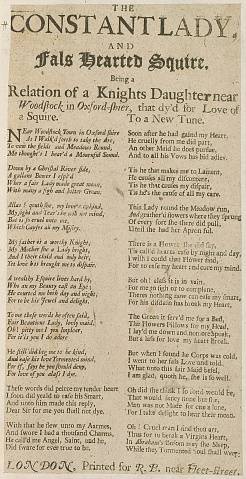 THE
CONSTANT LADY,
AND
Fals Hearted Squire.
Being a
Relation of a Knights Daughter near
Woodstock in Oxford-shire, that dy'd for Love of
a Squire. To a New Tune.
NEar Woodstock Town in Oxford-shire
As I Walk'd forth to take the Air,
To view the fields and Meadows Round,
Me thought I hear'd a Mournful Sound.
Down by a Christal River side,
A gallant Bower I espy'd
Where a fair Lady made great moan,
With many a sigh and bitter Groan.
Alas! quoth she, my love's unkind,
My sighs and Tears he will not mind,
But is so unto me,
Which causes all my Misery.
My father is a worthy Knight,
My Mother is a Lady bright,
And I their child and only heir,
Yet love has brought me to dispair.
A wealthy Squire lives hard by,
Who on my Beauty cast an Eye;
He courted me both day and night,
For to be his Jewel and delight.
To me these words he often said,
Fair Beautious Lady, lovely maid,
Oh! pitty me I you implore,
For it is you I do adore
He still did beg me to be kind,
And ease his love Tormented mind,
For if, says he you should deny,
For love of you alas! I dye.
These words did peirce my tender heart
I soon did yeald to ease his Smart,
And unto him made this reply,
Dear Sir for me you shall not dye.
With that he flew unto my Aarmes,
And swore I had a thousand Charms,
He call'd me Angel, Saint, and he,
Did sware for ever true to be.
Soon after he had gaind my Heart,
He cruelly from me did part,
An other Maid he does pursue,
And to all his Vows has bid adieu.
'Tis he that makes me to Lament,
He causes all my discontent,
'Tis he that causes my dispair,
'Tis he's the cause of all my care.
This Lady round the Meadow run,
And gather'd flowers where they sprung
Of every sort she there did pull,
Until she had her Apron ful.
There is a Flower she did say,
Is calld hearts ease by night and day
I wish I could that Flower find,
For to ease my heart and cure my mind.
But oh! alass it is in vain,
For me to sigh or to complaine,
Theres nothing can ease my smart,
For his disdain has broak my Heart.
The Green it serv'd me for a Bed,
The Flowers Pillows for my Head,
I lay'd me down and not breath,
But alass for love my heart Broak.
But when I found the Corps was cold,
I went to her fals Love and told
What unto this fair Maid befel,
I am glad, quoth he, she is so well.
Oh did she think I so fond would be,
That would fancy none but she,
Man was not Made for one alone,
For I take delight to hear their moan.
Oh! Cruel man I find thou art,
Thus for to break a Virgins Heart,
In Abraham's Bosom may she Sleep,
While thy Tormented Soul shall weep.
LONDON, Printed for R. B. near Fleet-street.